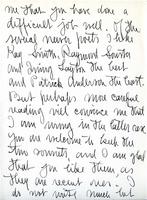 me that you have done a
difficult job well. Of the
several newer poets I like
Ray Smith, Raymond Souster
and Irving Layton the best
and Patrick Anderson the least.
But perhaps more careful
reading will convince me that
I am wrong in the latter case.
You are welcome to keep the
two sonnets, and I am glad
that you like them, as
they are recent ones. I do
not write much but